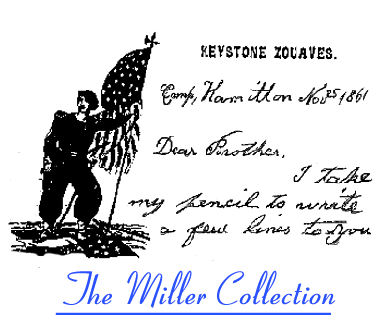 KEYSTONE ZOUAVES.
Camp, Hamilton Nov 25 1861
Dear Brother,
I take
my pencil to write
a few lines to you
The Miller Collection